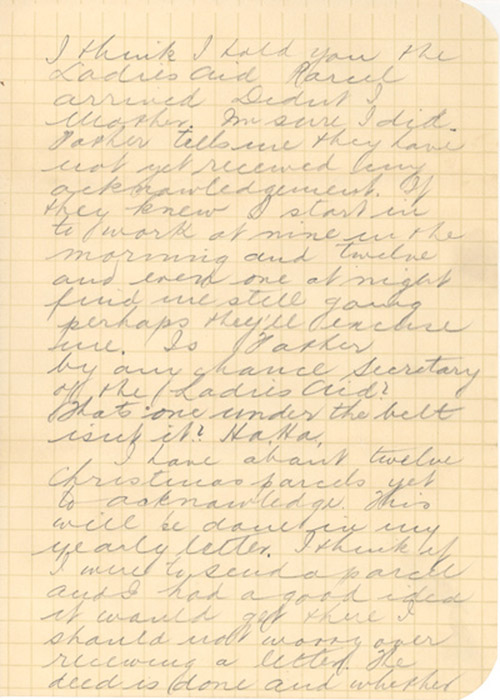 I think I told you the
Ladies Aid Parcel
arrived Didnt I
Mother. Im sure I did.
Father tells me they have
not yet received my
acknowledgement. If
they knew I start in
to work at nine in the
morning and twelve
and even one at night
find me still going
perhaps they'll excuse
me. Is Father
by any chance Secretary
of the Ladies Aid?
Thats one under the belt
isnt it? Ha. Ha.
I have about twelve
Christmas parcels yet
to acknowledge. This
will be done in my
yearly letter. I think if
I were to send a parcel
and I had a good idea
it would get there I
should not worry over
receiving a letter. The
deed is done and whether